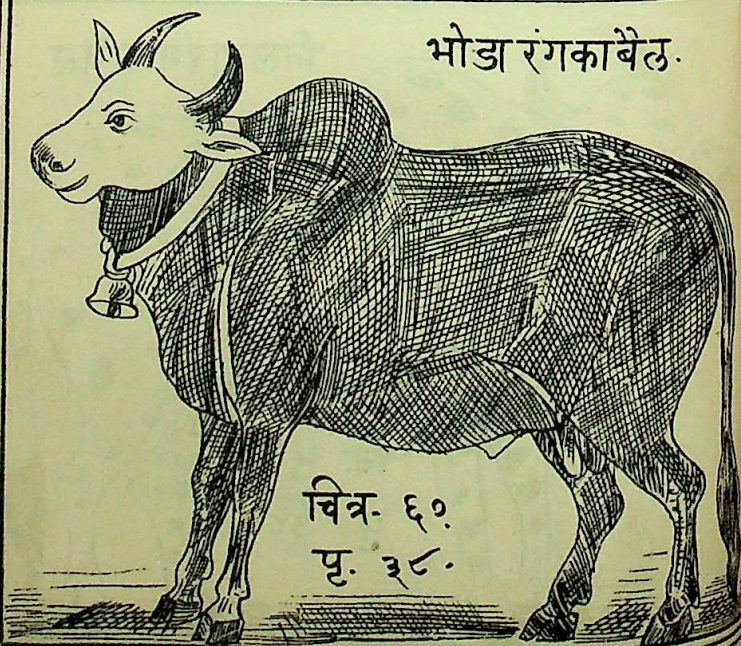 भोडा रंगका बैल.
चित्र- ६१
पृ. ३८.